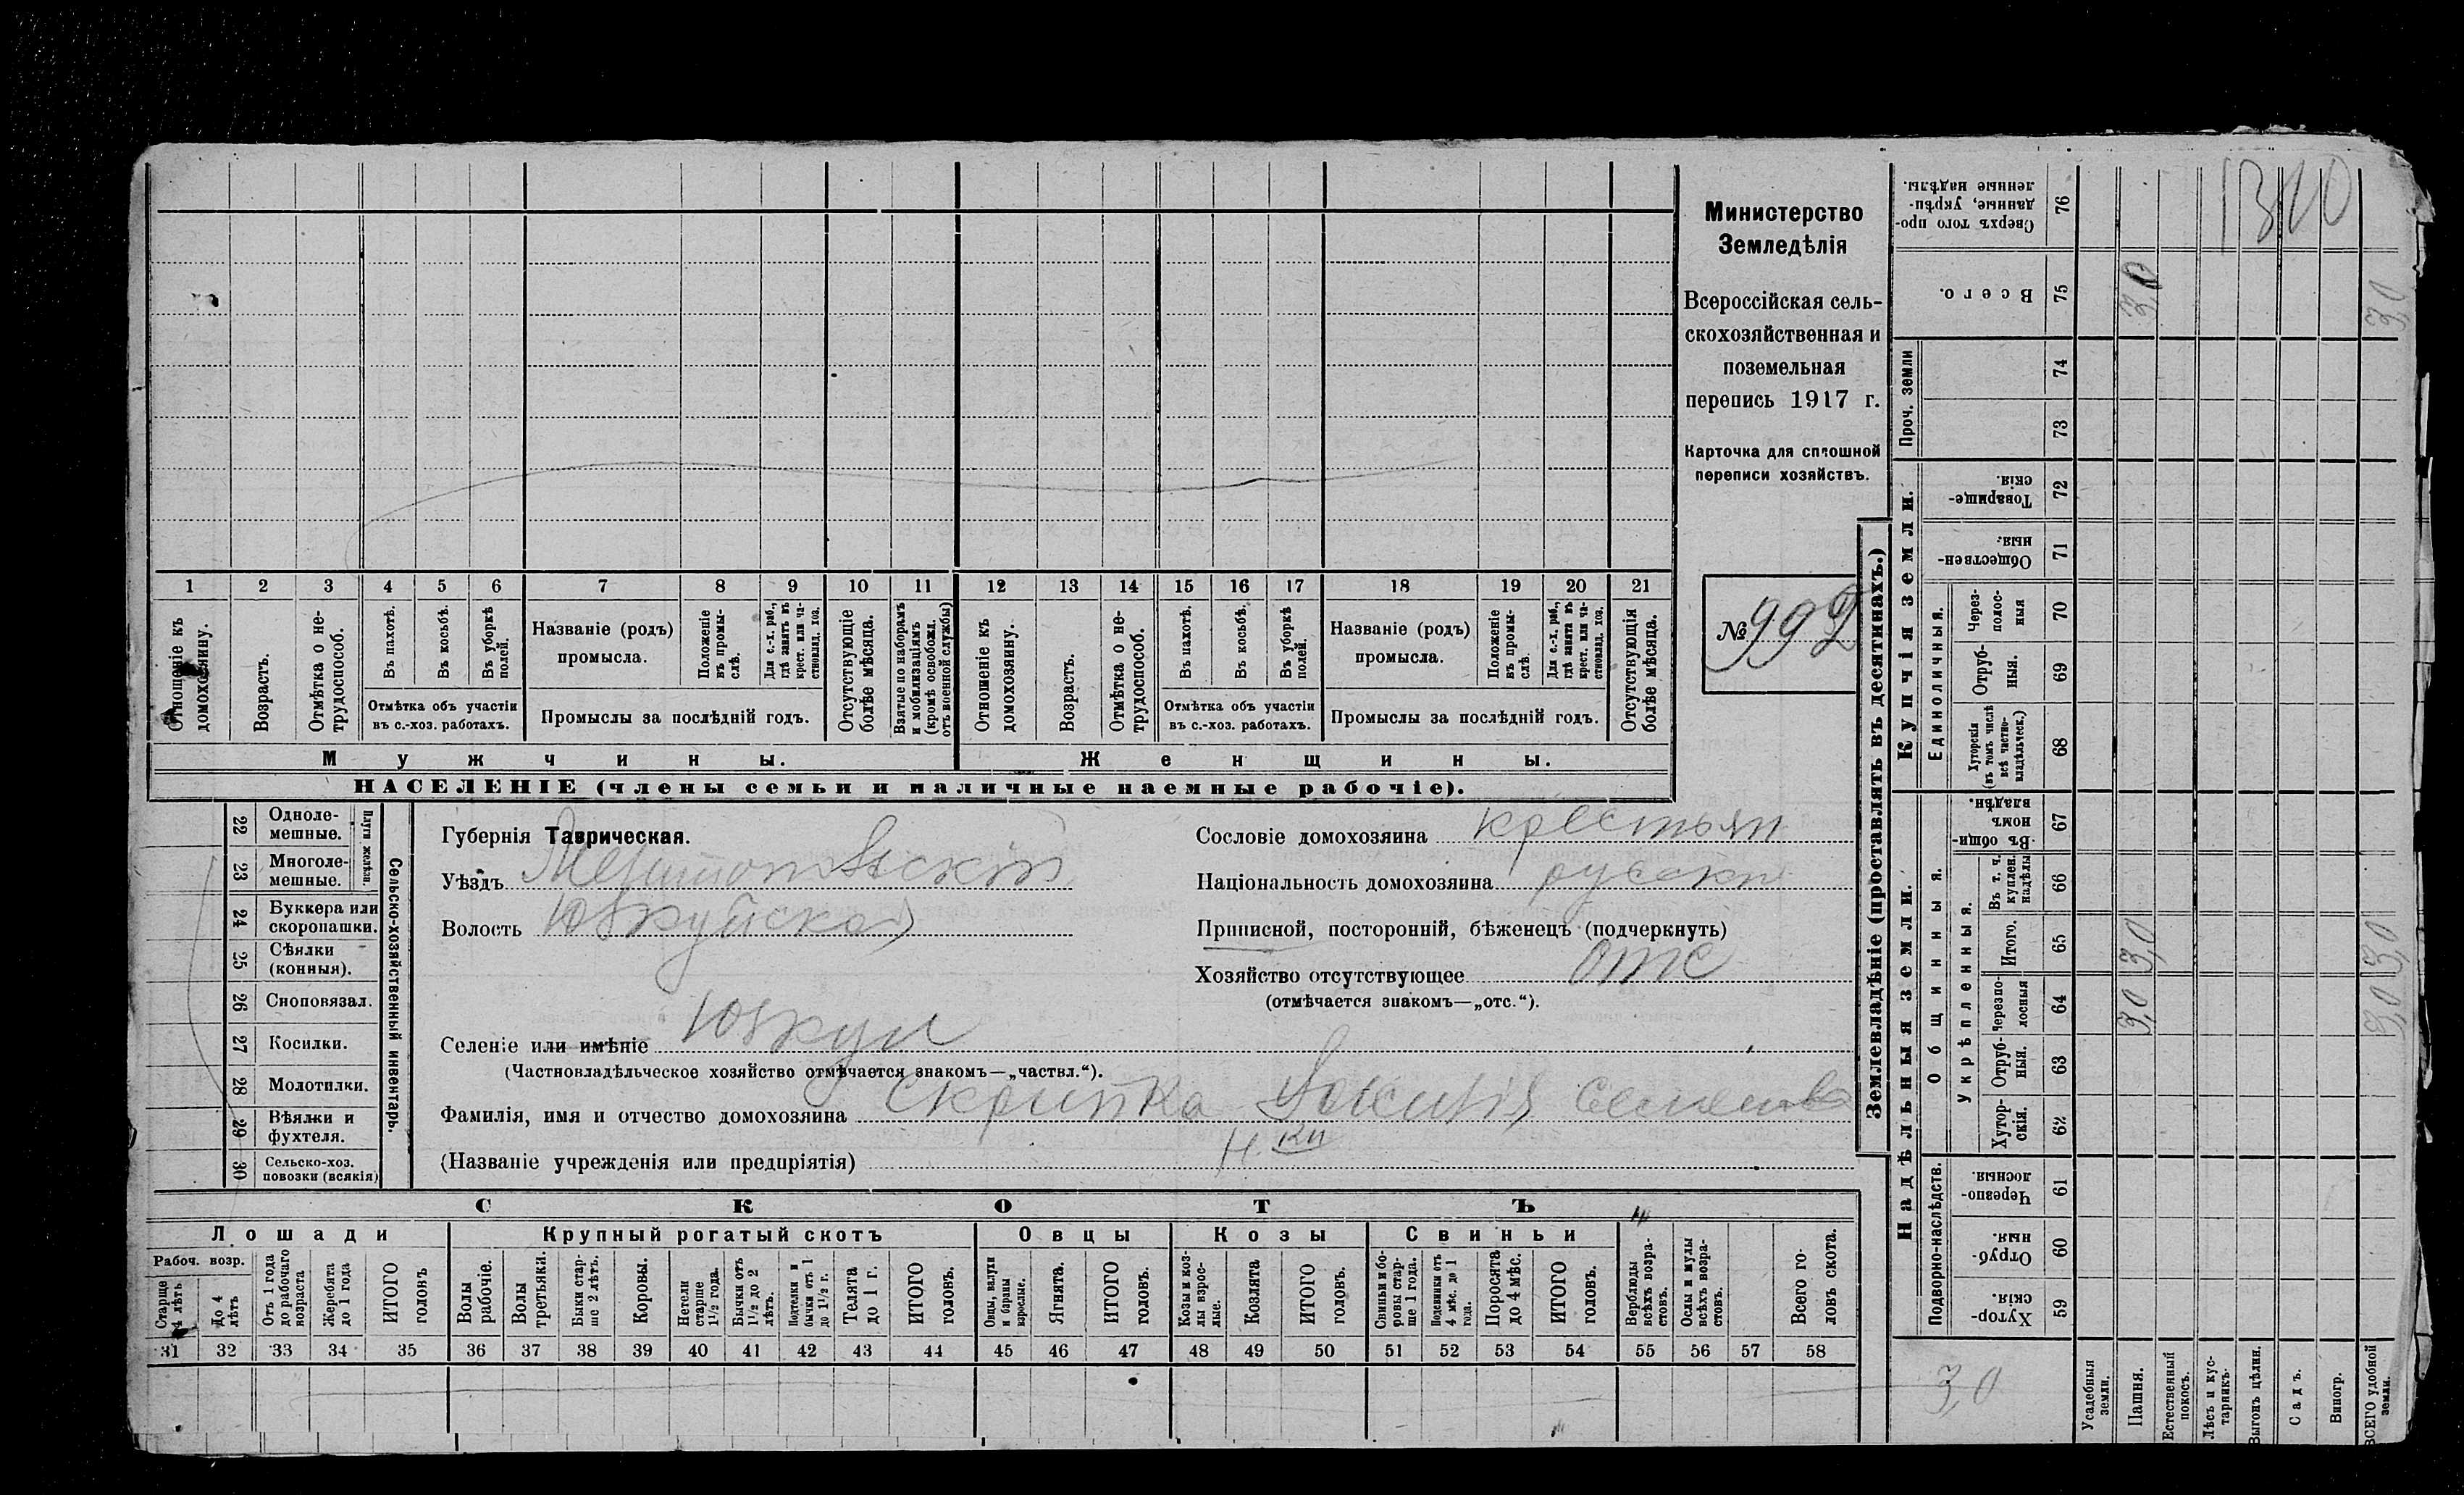 Министерство
Земледѣлія
Всероссійская сель-
скохозяйственная и
поземельная
перепись 1917 г.
Карточка для сплошной
переписи хозяйствъ.
№ 992
1 2 3 4 5 6 7 8 9 10 11 12 13 14 15 16 17 18 19 20 21
Отношеніе къ домохозяину.
Возрастъ.
Отмѣтка о не-
трудоспособ.
Въ пахотѣ.
Въ косьбѣ.
Въ уборкѣ полей.
Отмѣтка объ участіи
въ с.-хоз. работахъ.
Названіе (родъ)
промысла.
Положеніе
въ промы-
слѣ.
Для с.-х. раб.,
гдѣ занятъ въ
крест. или ча-
стновлад. хоз.
Промыслы за послѣдній годъ.
Отсутствующіе
болѣе мѣсяца.
Взятые по наборамъ
и мобилизаціямъ
(кромѣ освобожд.
отъ военной службы)
Отношеніе къ
домохозяину.
Возрастъ.
Отмѣтка о не-
трудоспособ.
Въ пахотѣ.
Въ косьбѣ.
Въ уборкѣ
полей.
Отмѣтка объ участіи
въ с.-хоз. работахъ.
Названіе (родъ)
промысла.
Положеніе
въ промы-
слѣ.
Для с.-х. раб.,
гдѣ занята въ
крест. или ча-
стновлад. хоз.
Промыслы за послѣдній годъ.
Отсутствующія
болѣе мѣсяца.
Мужчины.
Женщины.
НАСЕЛЕНІЕ (члены семьи и наличные наемные рабочіе).
22 Одноле-
мешные.
23 Многоле-
мешные.
Плуги желѣзн.
24 Буккера или
скоропашки.
25 Сѣялки
(конныя).
26 Сноповязал.
27 Косилки.
28 Молотилки.
29 Вѣялки и
фухтеля.
30 Сельско-хоз.
повозки (всякія)
Сельско-хозяйственный инвентарь.
Губернія Таврическая.
Уѣздъ Мелитопольскій
Волость Юзкуйская
Селеніе или имѣніе Юзкуи
(Частновладѣльческое хозяйство отмѣчается знакомъ—„частвл.“).
Фамилія, имя и отчество домохозяина Скрипка
(Названіе учрежденія или предпріятія)
Сословіе домохозяина крестьян
Національность домохозяина русски
Приписной, посторонній, бѣженецъ (подчеркнуть)
Хозяйство отсутствующее отс
(отмѣчается знакомъ—„отс.“).
СКОТЪ
Лошади
Рабоч. возр.
Старше
4 лѣтъ
До 4
лѣтъ
Отъ 1 года
до рабочаго
возраста
Жеребята
до 1 года
ИТОГО
головъ
Крупный рогатый скотъ
Волы
рабочіе.
Волы
третьяки.
Быки стар-
ше 2 лѣтъ.
Коровы.
Нетели
старше
1 1/2 года.
Бычки отъ
1 1/2 до 2
лѣтъ.
Подтелки и
бычки отъ 1
до 1 1/2 г.
Телята
до 1 г.
ИТОГО
головъ.
Овцы
Овцы, валухи
и бараны
взрослые.
Ягнята.
ИТОГО
головъ.
Козы
Козы и коз-
лы взрос-
лые.
Козлята
ИТОГО
головъ.
Свиньи
Свиньи и бо-
ровы стар-
ше 1 года.
Подсвинки отъ
4 мѣс. до 1
года.
Поросята
до 4 мѣс.
ИТОГО
головъ.
Верблюды
всѣхъ возра-
стовъ.
Ослы и мулы
всѣхъ возра-
стовъ.
Всего го-
ловъ скота.
31 32 33 34 35 36 37 38 39 40 41 42 43 44 45 46 47 48 49 50 51 52 53 54 55 56 57 58
Землевладѣніе (проставлять въ десятинахъ.)
Надѣльныя земли.
Подворно-наслѣдств.
Хутор-
скія. 59
Отруб-
ныя. 60
Черезпо-
лосныя. 61
Общинныя.
Укрѣпленныя.
Хутор-
скія. 62
Отруб-
ныя. 63
Черезпо-
лосныя 64
Итого. 65
Въ т. ч.
куплен.
надѣлы 66
Въ общи-
номъ
владѣн. 67
Купчія земли.
Единоличныя.
Хуторскія
(въ томъ числѣ
всѣ частно-
владѣльческ.) 68
Отруб-
ныя. 69
Через-
полос-
ныя 70
Обществен-
ныя. 71
Товарище-
скія. 72
Проч. земли
73 74
Всего. 75
Сверхъ того про-
данные, укрѣп-
ленные надѣлы. 76
Усадебныя
земли.
Пашня.
3,0 3,0 3,0
Естественный
покосъ.
Лѣсъ и кус-
тарникъ.
Выгонъ цѣлин.
Садъ.
Виногр.
ВСЕГО удобной
земли.
3,0 3,0 3,0
3,0